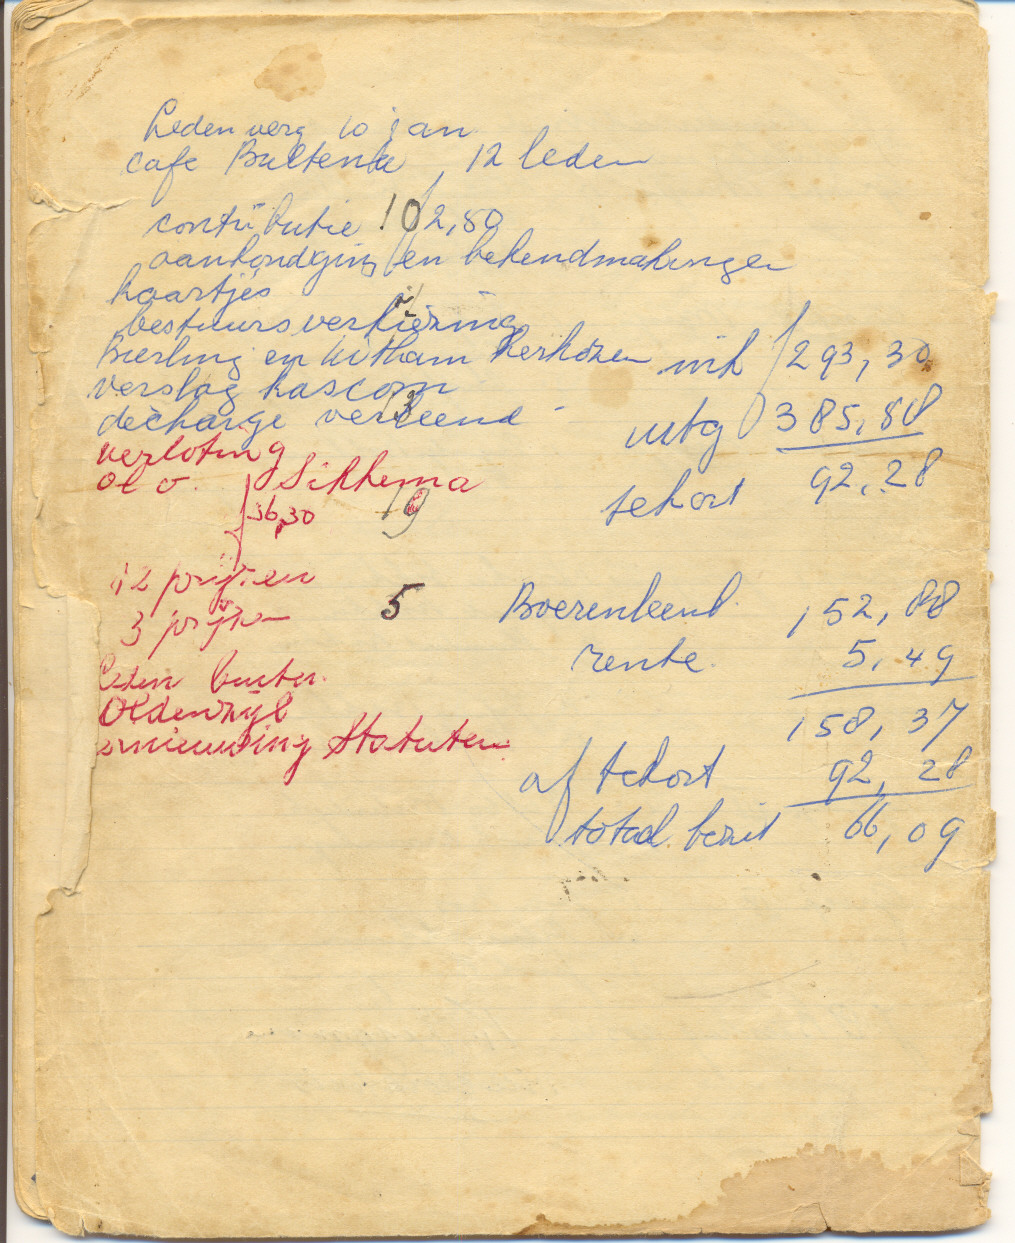 Ledenverg 10 jan
cafe Bultena 12 leden
contributie 10 / 2,50
aankondging en bekendmakingen
kaartjes
bestuursverkiezing
Bierling en Witham herkozen
verslag kascom
decharge verleend -
ink ƒ 293,30
uitg ƒ 385,58
tekort 92,28
verloting
ol v. Sikkema
36,30
19
12 prijzen
3 prijzen
5
Leden buiten
Oldenzijl
ernieuwing Statuten
Boerenleenb. 152,88
rente. 5,49
158,37
af tekort 92,28
totaal bezit 66,09